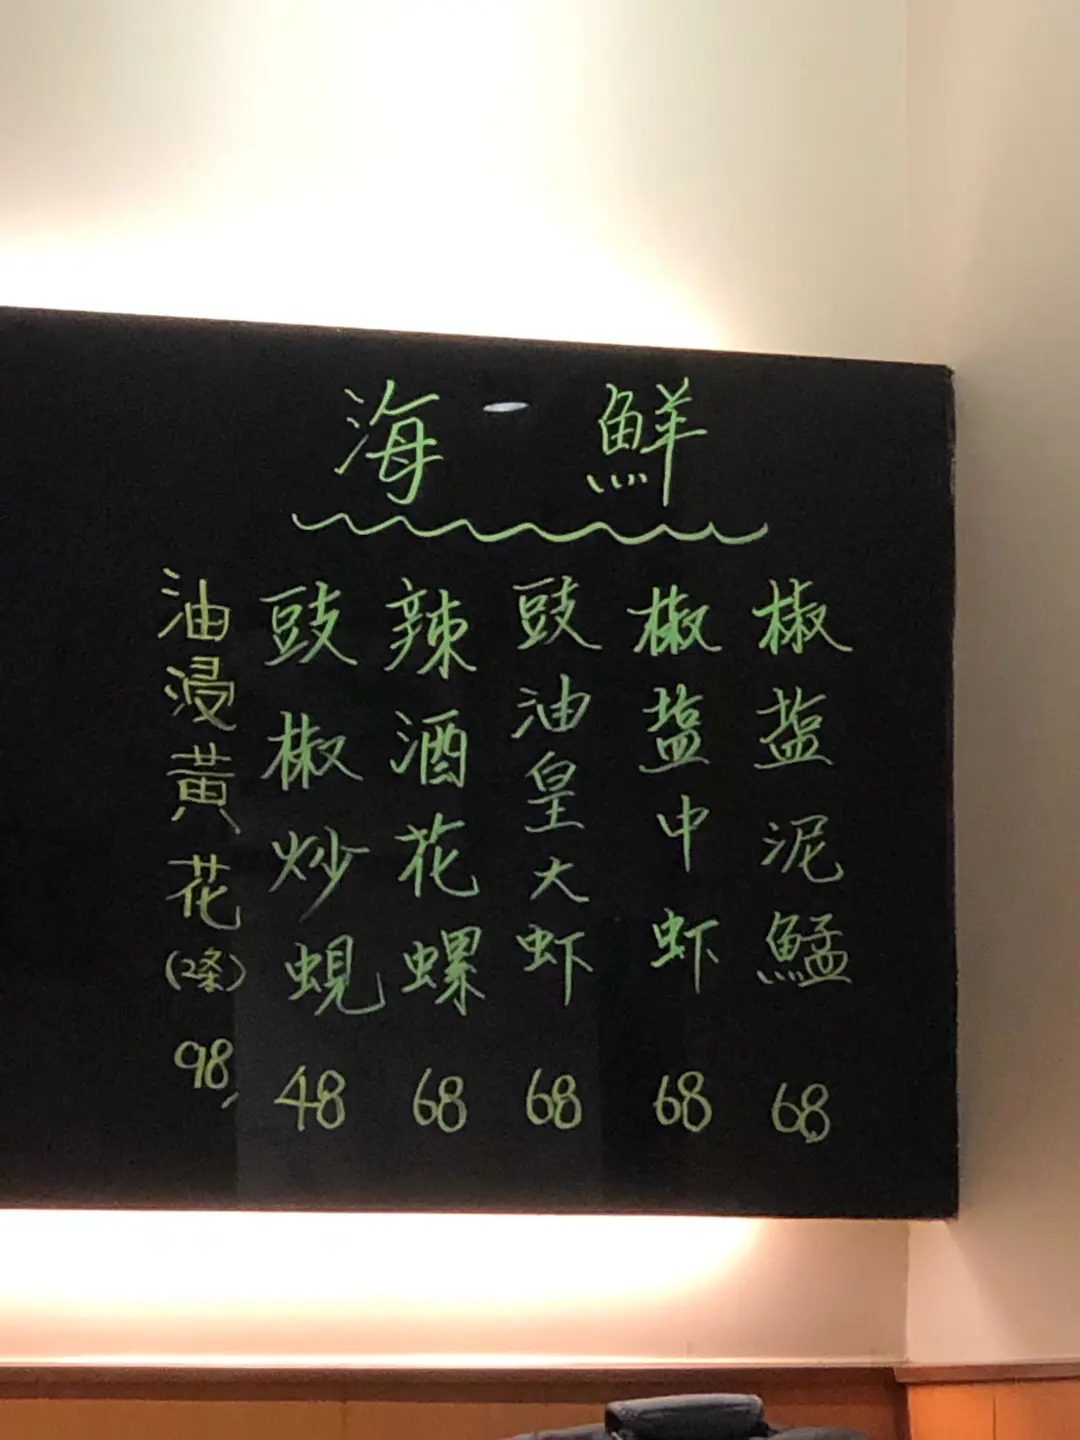 海鮮
椒盐泥鯭 68
椒盐中虾 68
豉油皇大虾 68
辣酒花螺 68
豉椒炒蜆 48
油浸黃花(2条) 98